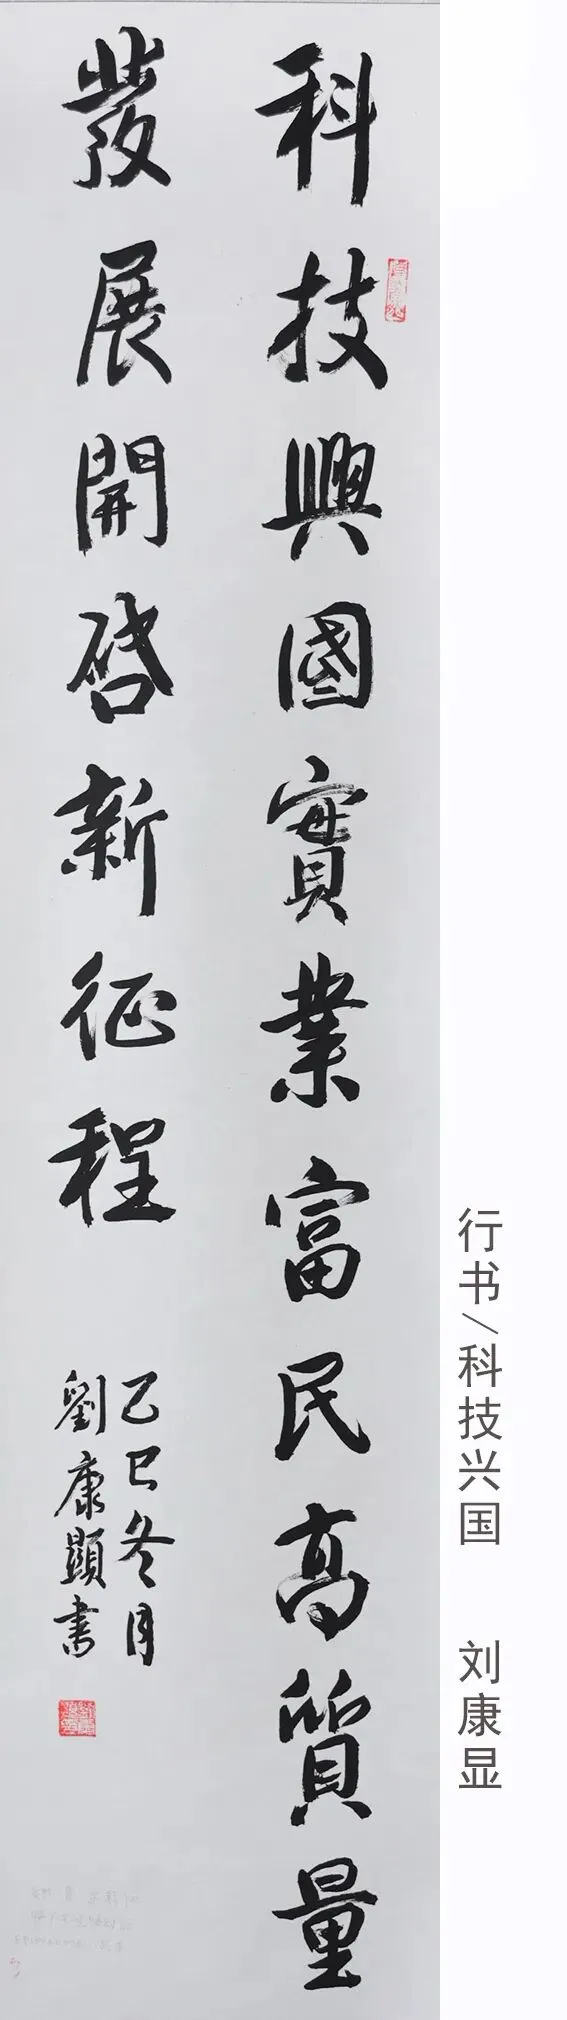 科技興國實業富民高質量
發展開啓新征程
乙巳冬月
劉康顯書
行书/科技兴国 刘康显